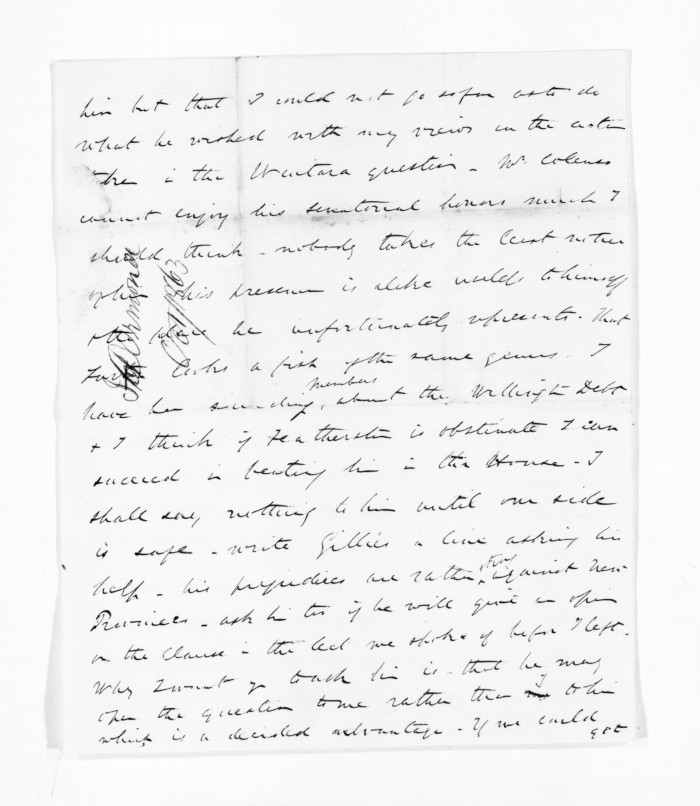 him but that I could not go so far as to do
what he wished with my views on the action
taken in the Waitara question - Mr Colenso
cannot enjoy his senatorial honors much I
should think - nobody takes the least notice
of him his presence is alike useless to himself
& the place he unfortunately represents - that
looks a fish of the same genus - I
have been sounding members about the Wellington Debt
& I think if Featherston is obstinate I can
succeed in beating him in the House - I
shall say nothing to him until our side
is safe - write Gillies a line asking his
help - his prejudices are rather against New
Provinces - ask him too if he will give an opinion
on the Clause in the Act we spoke of before I left -
Why I want you to ask him is - that he may
open the question to me rather than I to him
which is a decided advantage - If we could
get
J D Ormond
Oct 1863